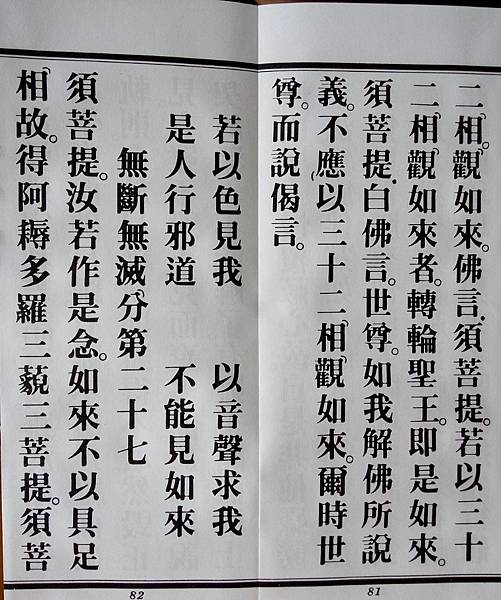 二。相。觀如來。佛言.須菩提。若以三十
二。相。觀如來者。轉輪聖王。即是如來。
須菩提.白佛言。世尊。如我解佛所說
義。不應以三十二。相。觀如來。爾時世
尊。而說偈言。
若以色見我　以音聲求我
是人行邪道　不能見如來
無斷無滅分第二十七
須菩提。汝若作是念。如來不以具足
相故。得阿耨多羅三藐三菩提。須菩
81
82